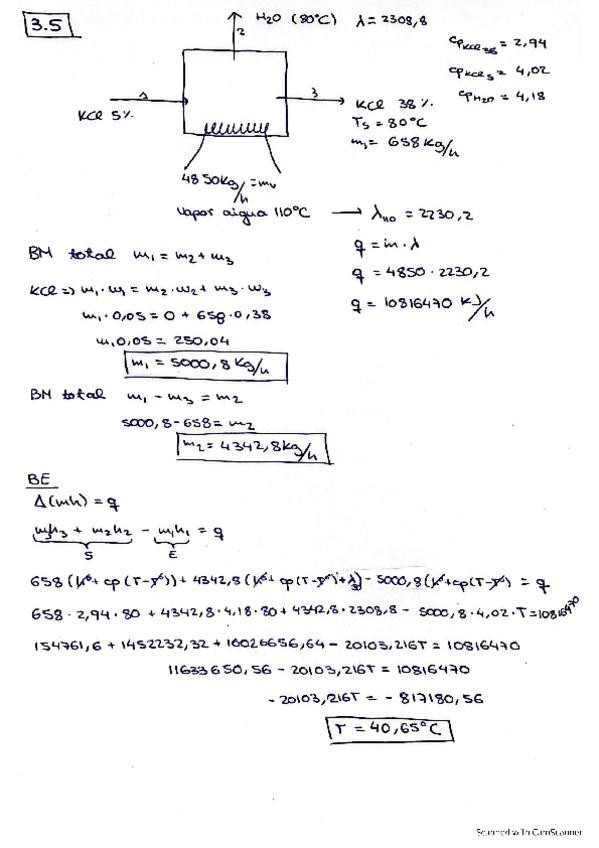 3.5
H2O (80°C) λ = 2308,8
2
cpKCl38 = 2,94
cpKCl5 = 4,02
cpH2O = 4,18
1
KCl 5%
3
KCl 38%
T3 = 80°C
m3 = 658 kg/h
4850 kg/h = mv
Vapor aigua 110°C → λ110 = 2230,2
q = m·λ
q = 4850·2230,2
q = 10816470 kJ/h
BM total m1 = m2 + m3
KCl => m1·w1 = m2·w2 + m3·w3
m1·0,05 = 0 + 658·0,38
m1 0,05 = 250,04
m1 = 5000,8 kg/h
BM total m1 - m3 = m2
5000,8 - 658 = m2
m2 = 4342,8 kg/h
BE
Δ(mh) = q
m3h3 + m2h2 - m1h1 = q
S E
658 (h° + cp (T-T°)) + 4342,8 (h° + cp (T-T°) + λ) - 5000,8 (h° + cp (T-T°)) = q
658·2,94·80 + 4342,8·4,18·80 + 4342,8·2308,8 - 5000,8·4,02·T = 10816470
154761,6 + 1452232,32 + 10026656,64 - 20103,216T = 10816470
11633650,56 - 20103,216T = 10816470
-20103,216T = -817180,56
T = 40,65°C
Scanned with CamScanner